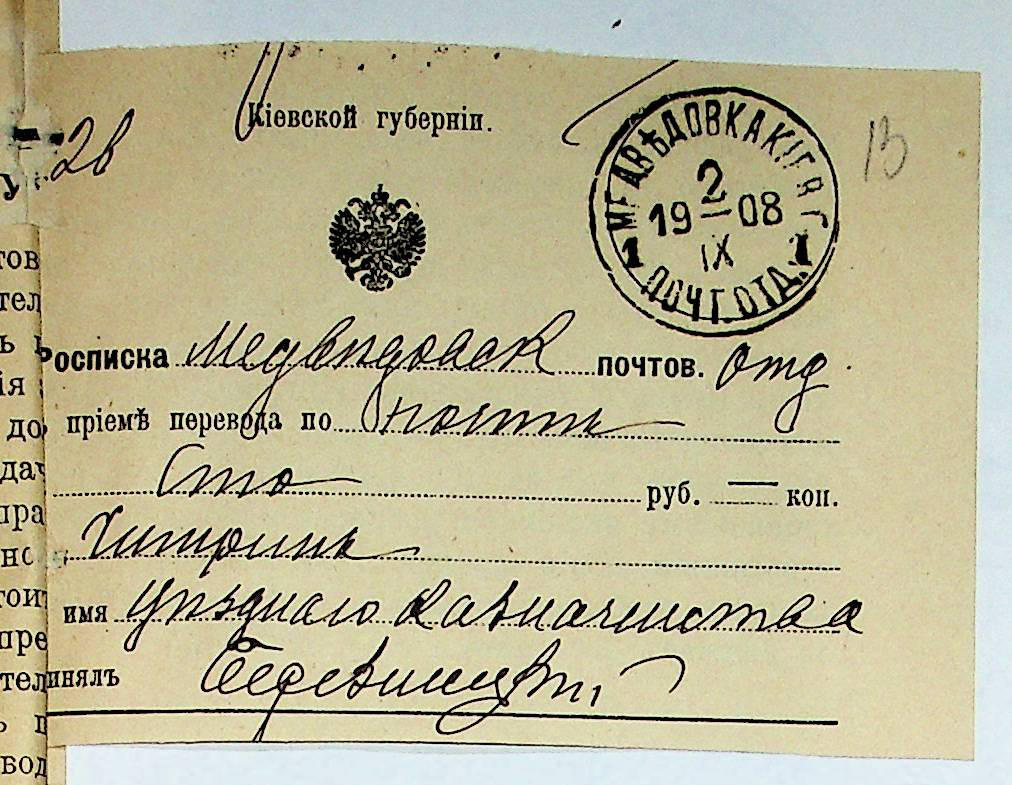 Кіевской губерніи.
28
13
МЕДВѢДОВКА КІЕВ. Г.
2
19 08
IX
1 1
ПОЧТ. ОТД.
Росписка Медвѣдовск почтов. Отд.
пріемѣ перевода по почтѣ
Сто руб. — коп.
Чигринъ
имя Уѣзднаго Казначейства
инялъ
тов
тел
ія
до
дач
пра
но
тоит
пре
тел
вод